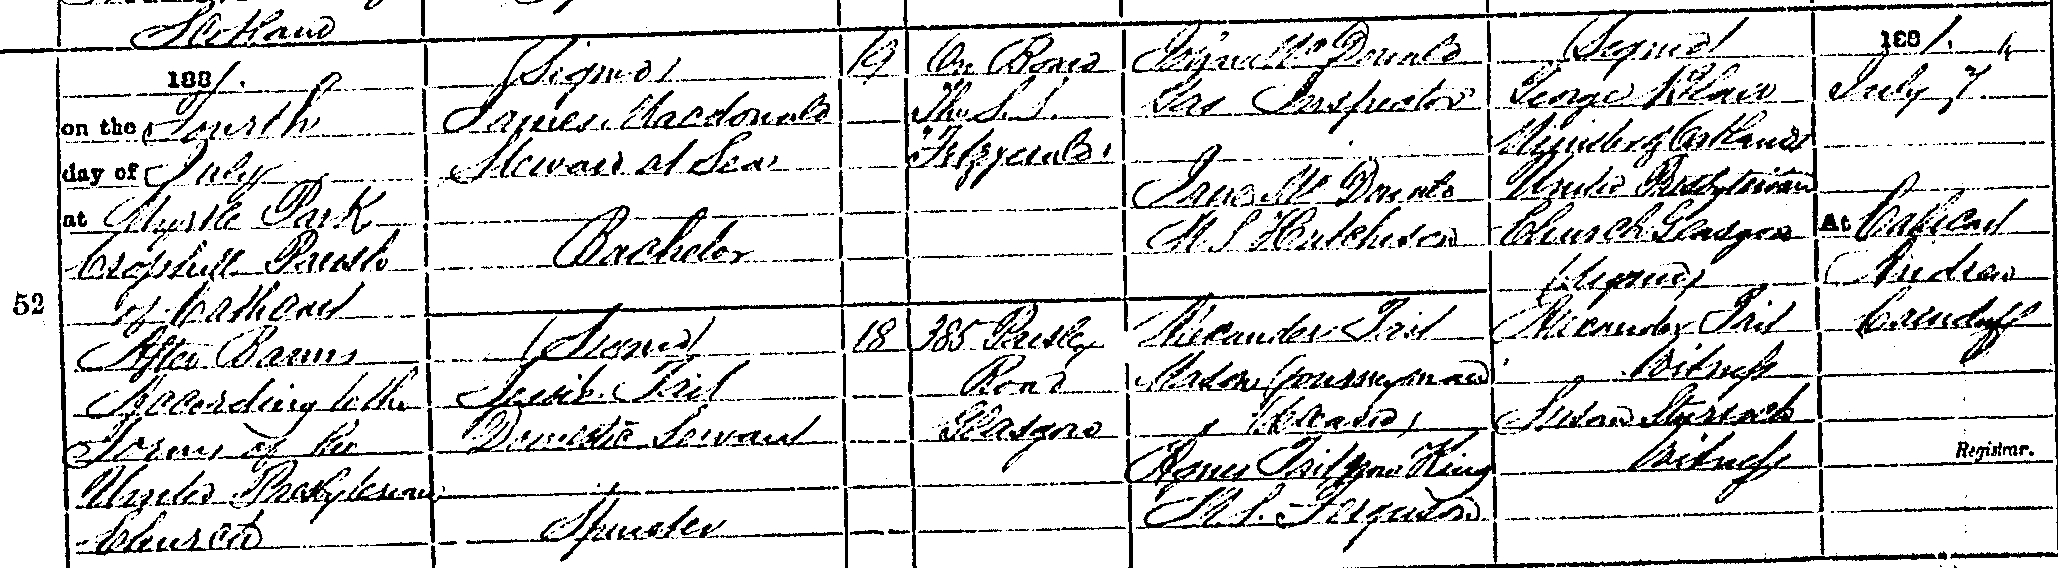 Scotland
1881.
on the Fourth
day of July
at Myrtle Park
Crosshill Parish
of Cathcart
After Banns
According to the
Forms of the
United Presbyterian
Church
52
(Signed)
James Macdonald
Steward at Sea
Bachelor
(Signed)
Jessie Tait
Domestic Servant
Spinster
19
18
On Board
The S.S.
"Fitzgerald"
385 Paisley
Road
Glasgow
McDonald
Gas Inspector
Jane McDonald
M.S. Hutchison
Alexander Tait
Mason (Journeyman)
(Deceased)
Agnes Tait now King
M.S. Ferguson
(Signed)
George Blair
Minister
United Presbyterian
Church Glasgow
(Signed)
Alexander Tait
Witness
Witness
1881.
July 7th
At Cathcart
Andrew
Registrar.